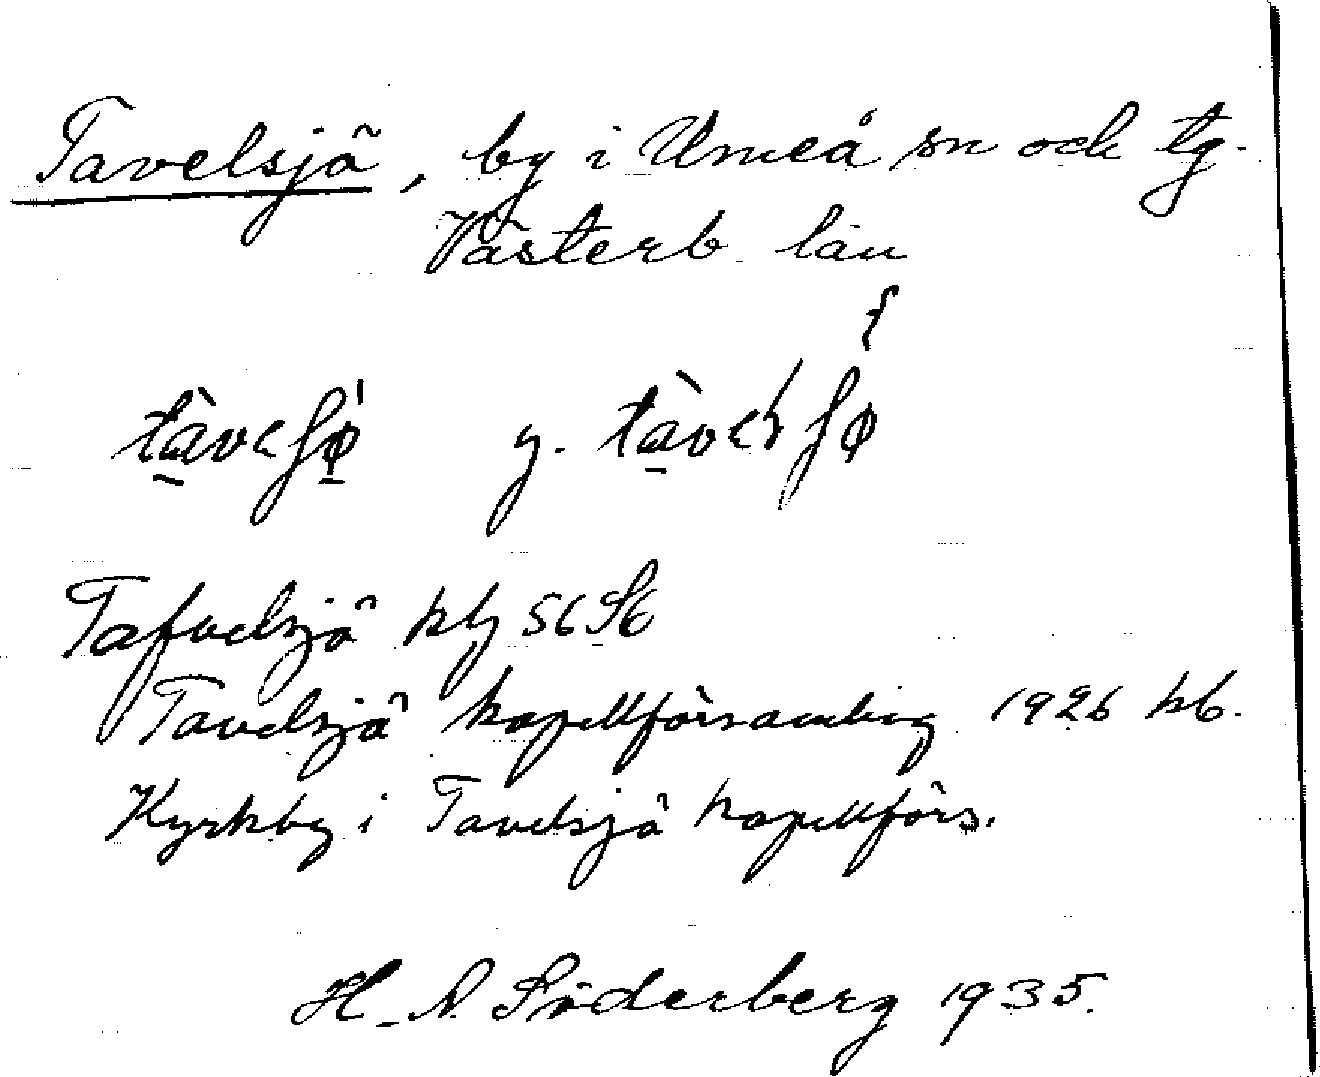 Tavelsjö, by i Umeå sn och tg.
Västerb. län
y.
Tafvelsjö
Tavelsjö kapellförsamling 1926
Kyrkby i Tavelsjö kapellförs.
H. N. Söderberg 1935.